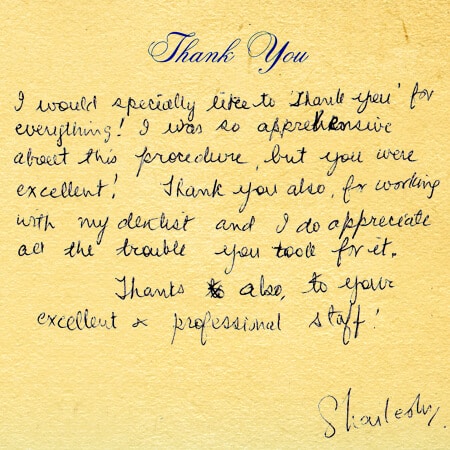 Thank You
I would specially like to 'Thank you' for
everything! I was so apprehensive
about this procedure, but you were
excellent! Thank you also, for working
with my dentist and I do appreciate
all the trouble you took for it.
Thanks also, to your
excellent & professional staff!